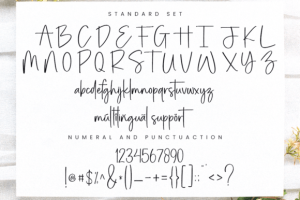 STANDARD SET
ABCDEFGHIJKL
MNOPQRSTUVWXYZ
abcdefghijklmnopqrstuvwxyz
multilingual support
NUMERAL AND PUNCTUACTION
1234567890
!@#$%^&*()_-+={}[]:;<>?